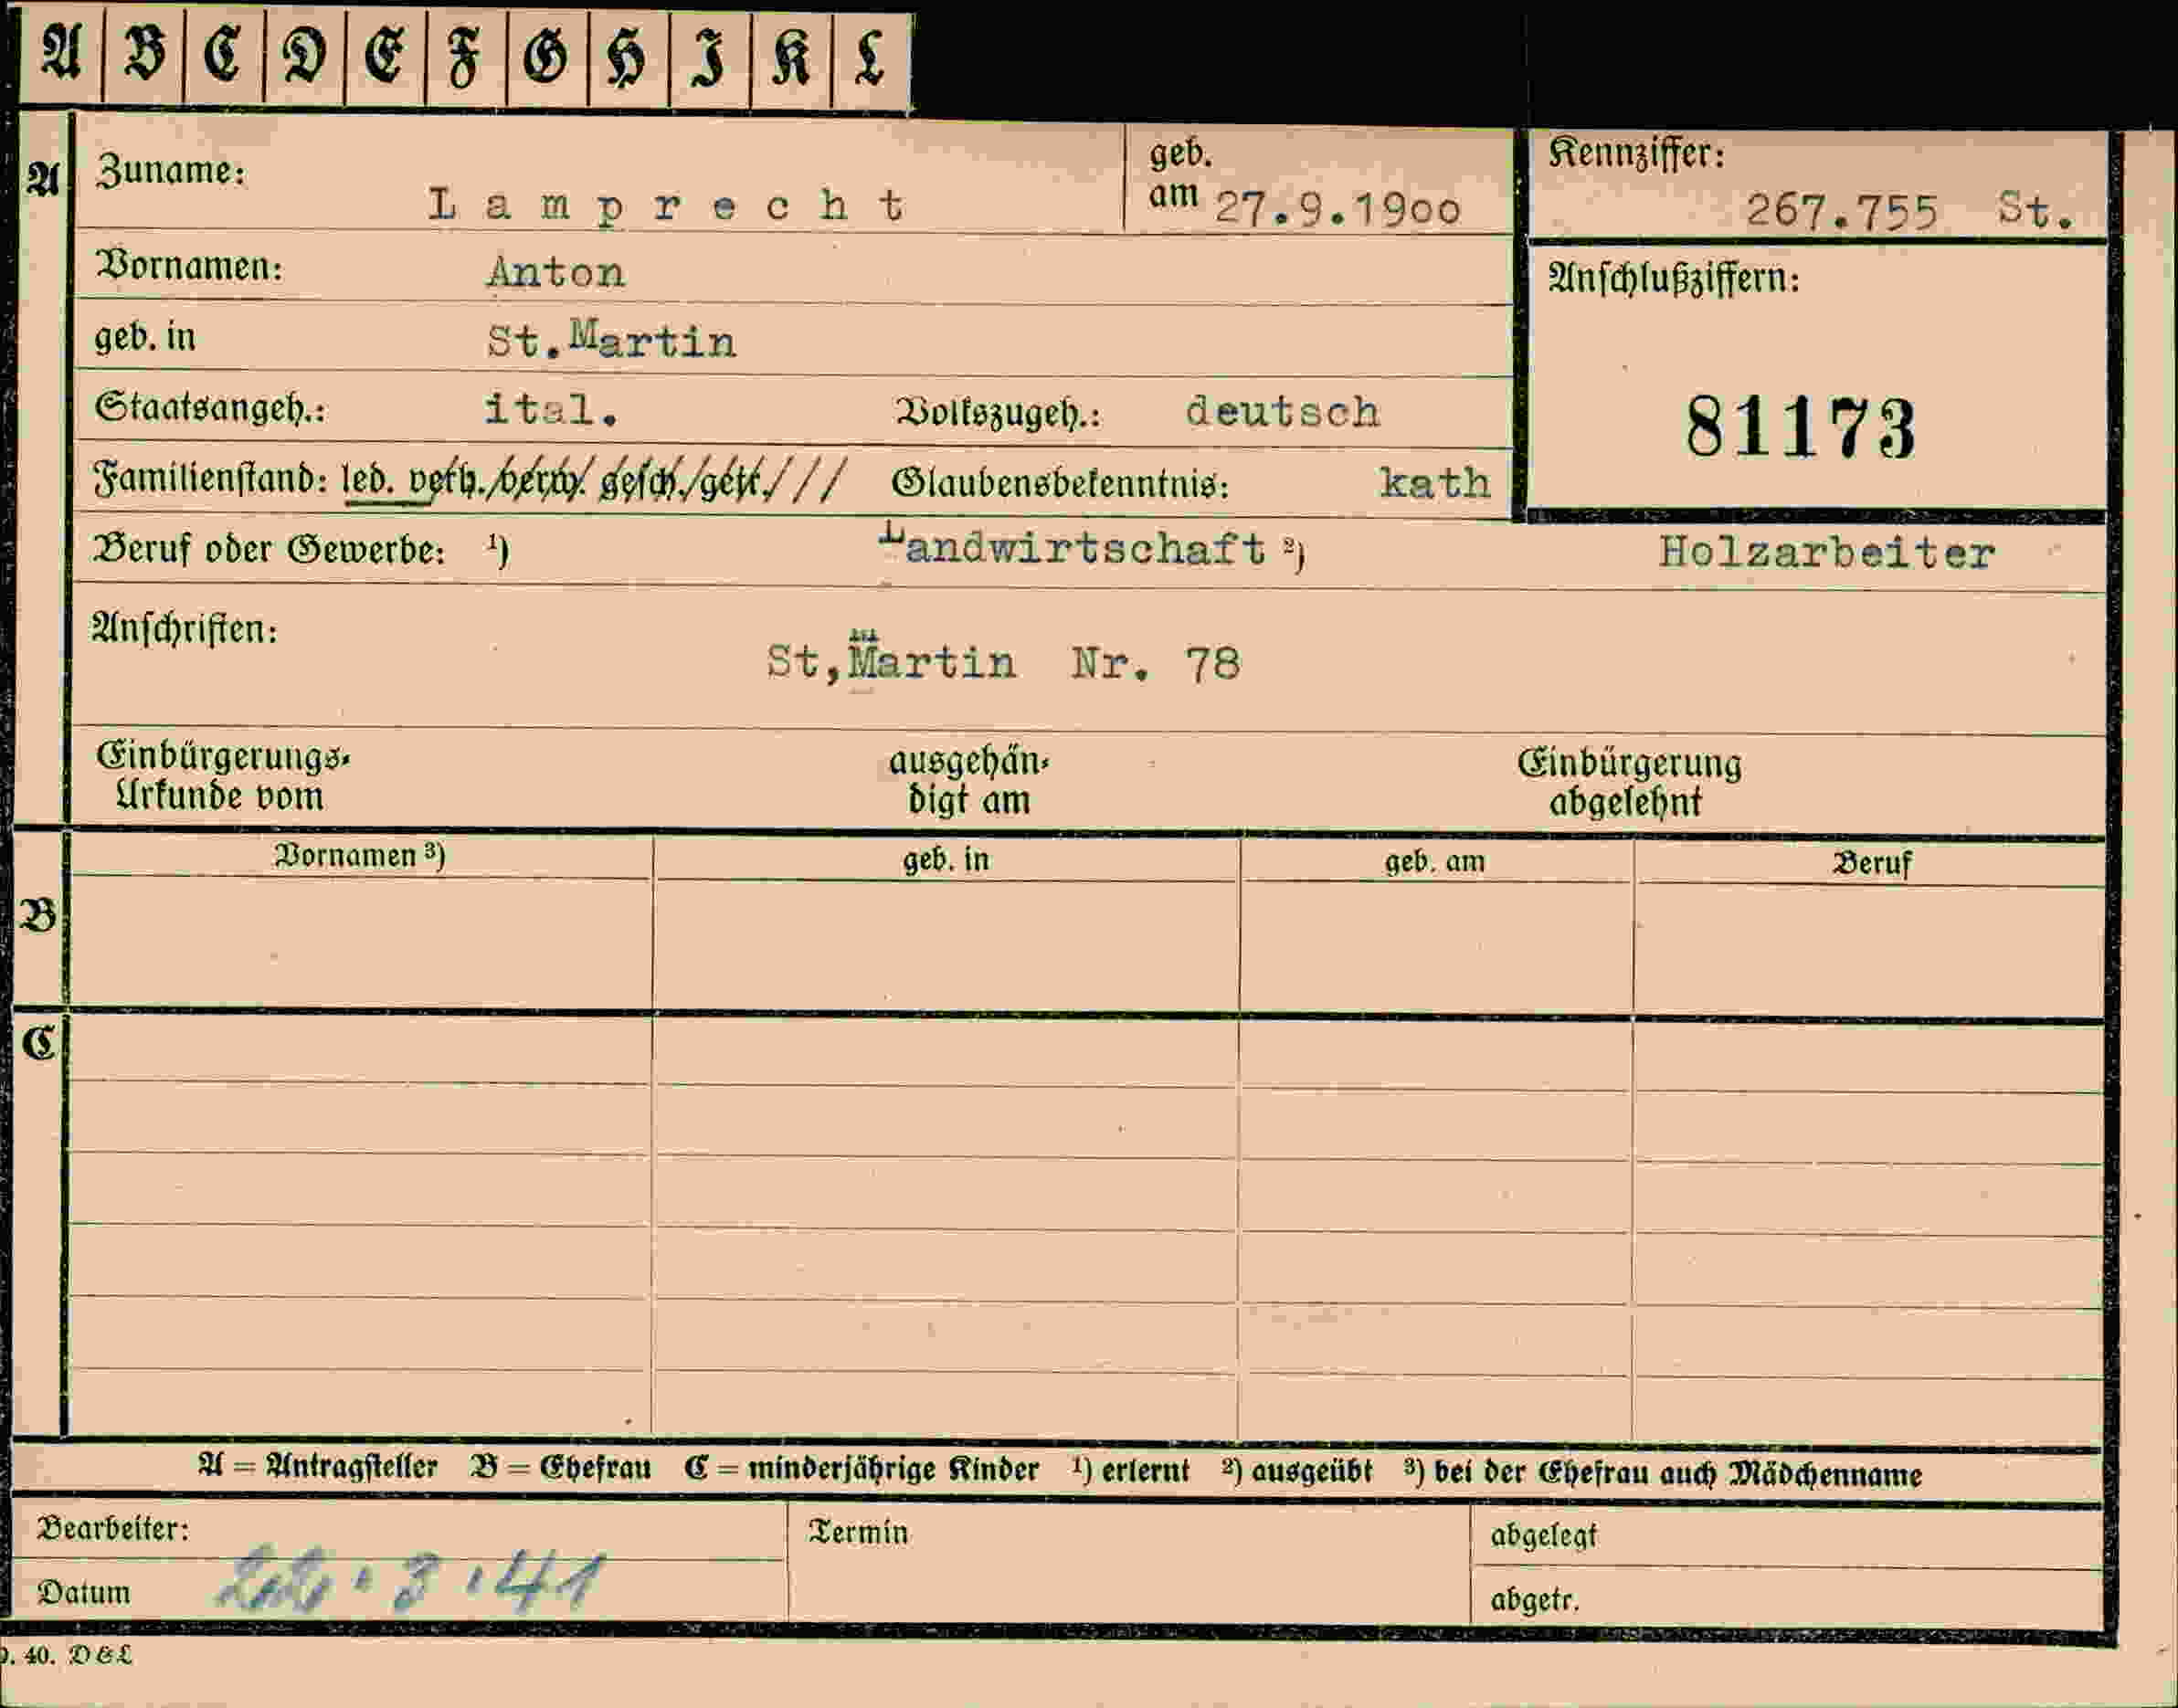 A B C D E F G H I K L
A Zuname: Lamprecht geb. am 27.9.1900 Kennziffer: 267.755 St.
Vornamen: Anton Anschlußziffern:
geb. in St.Martin
Staatsangeh.: ital. Volkszugeh.: deutsch 81173
Familienstand: led. verh. verw. gesch. getr. /// Glaubensbekenntnis: kath
Beruf oder Gewerbe: ¹) Landwirtschaft ²) Holzarbeiter
Anschriften: St,Martin Nr. 78
Einbürgerungs- ausgehän- Einbürgerung
Urkunde vom digt am abgelehnt
Vornamen ³) geb. in geb. am Beruf
B
C
A = Antragsteller B = Ehefrau C = minderjährige Kinder ¹) erlernt ²) ausgeübt ³) bei der Ehefrau auch Mädchenname
Bearbeiter: Termin abgelegt
Datum 22.3.41 abgetr.
40. D&L